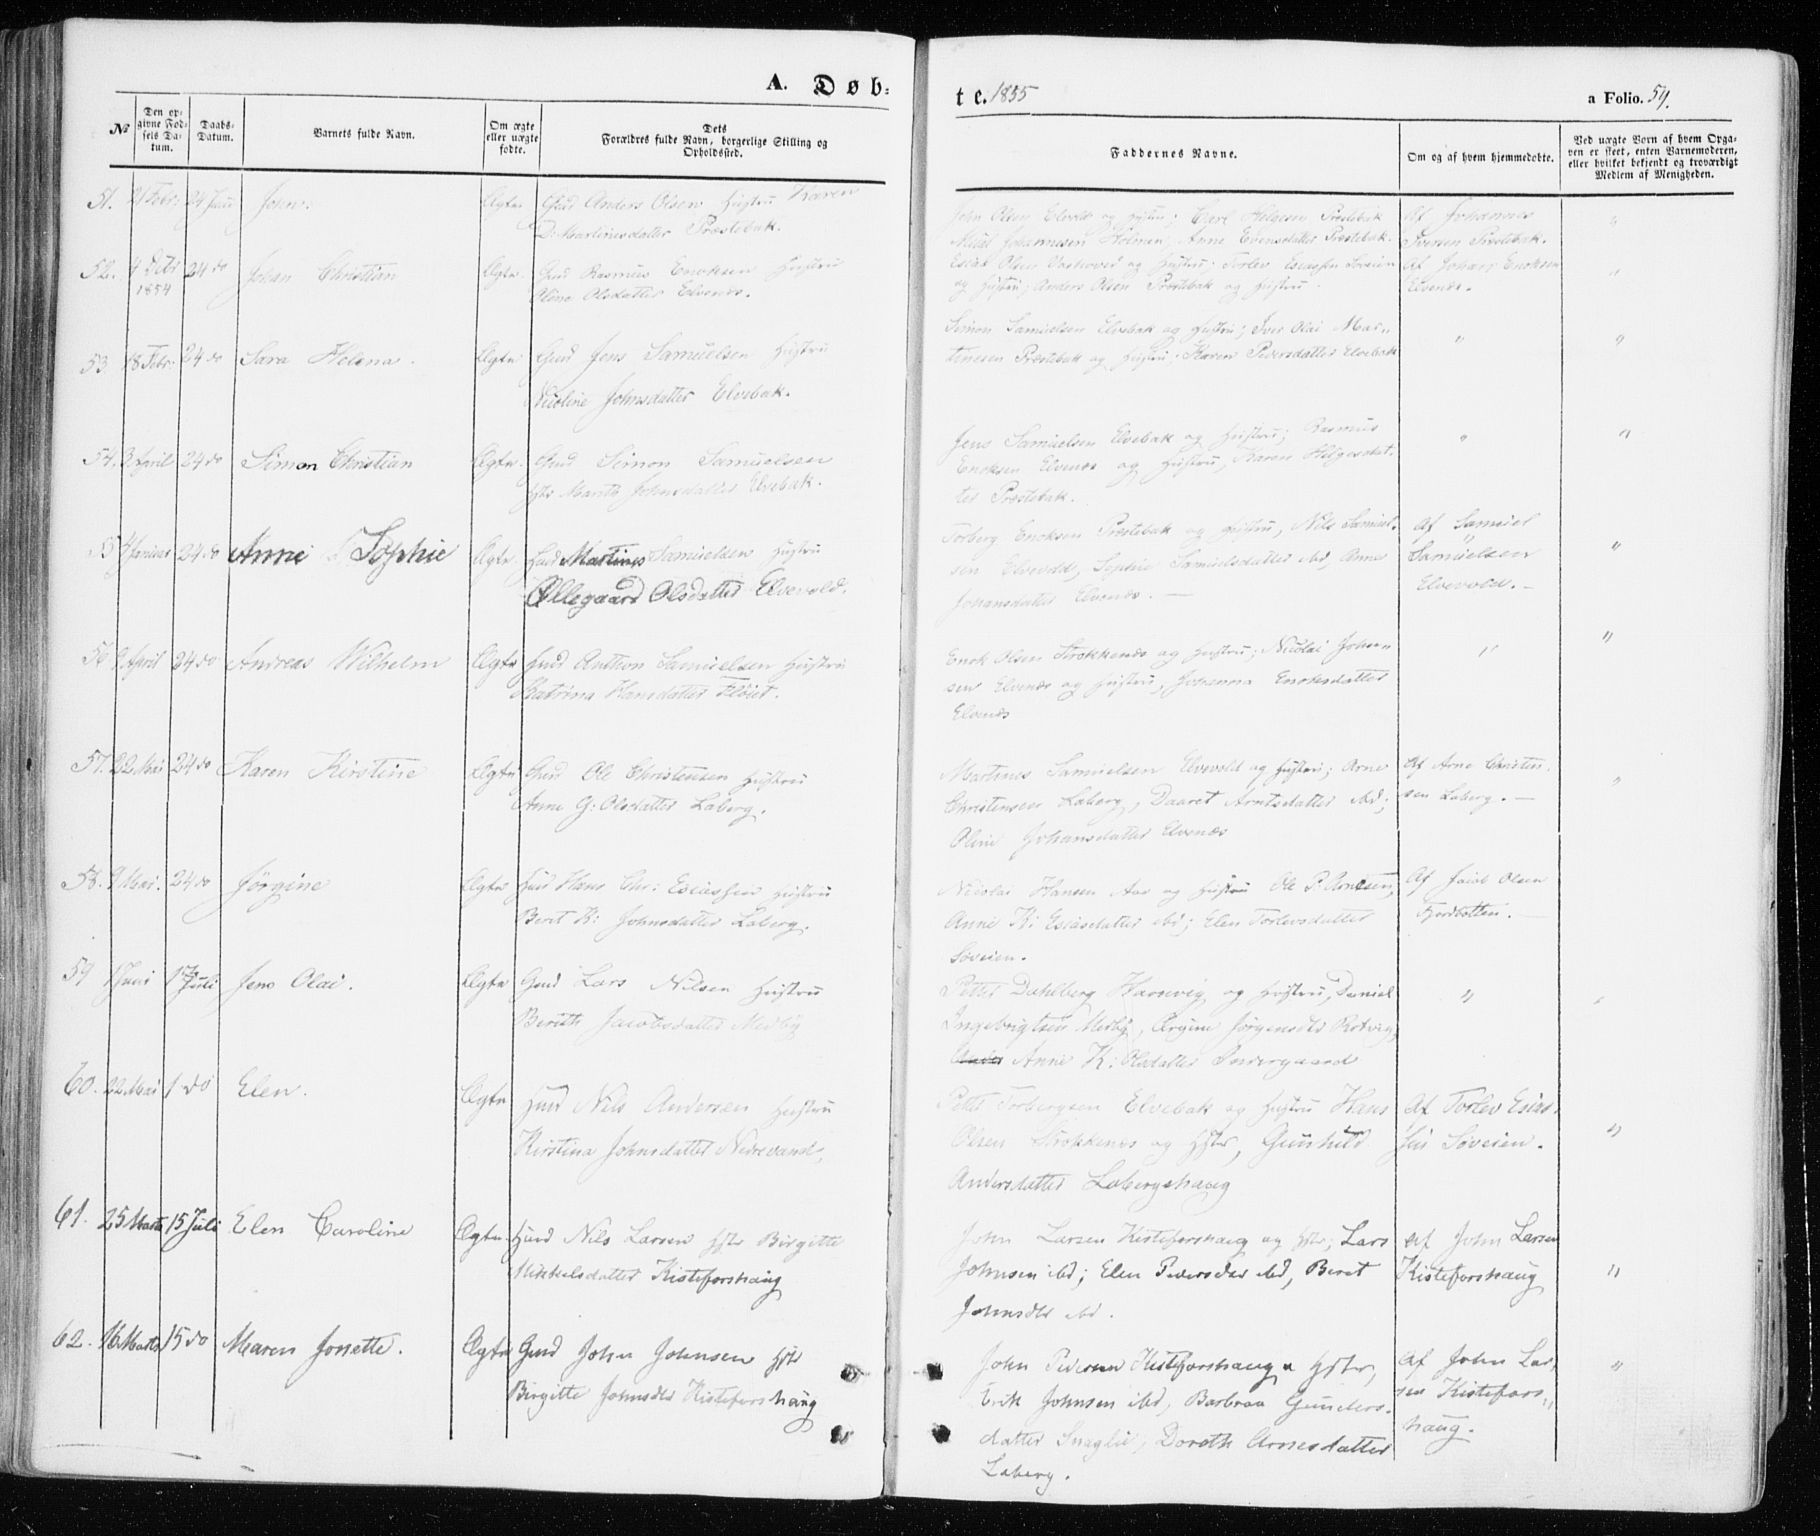 A. Døb=
te. 1855
a Folio. 54.
No
Den opgivne Fødsels Datum.
Daabs-Datum.
Barnets fulde Navn.
Om ægte eller uægte fødte.
Dets Forældres fulde Navn, borgerlige Stilling og Opholdssted.
Faddernes Navne.
Om og af hvem hjemmedøbte.
Ved uægte Born af hvem Opgaven er skeet, enten Barnemoderen, eller hvilket bekjendt og troværdigt Medlem af Menigheden.
51. 21 Febr: 24 Juni John. Ægte Gmd Anders Olsen Hustru Karen
D: Martinesdatter Præstebak.
John Olsen Elvevold og Hustru; Carl Helgesen Præstebak
Johannesen Holmen, Anne Evensdatter Præstebak.
Af Johannes
Iversen Præstebak.
"
52. 4 Debr 1854 24 do Johan Christian Ægte Gmd Rasmus Enoksen Hustru
Oline Olsdatter Elvenes.
Esias Olsen og Hustru; Torlev Esiassen Søveien
og Hustru; Anders Olsen Præstebak og Hustru.
Af Johan Enoksen
Elvenes.
"
53. 18 Febr: 24 do Sara Helena. Ægte Gmd Jens Samuelsen Hustru
Nicoline Johnsdatter Elvebak.
Simon Samuelsen Elvebak og Hustru; Iver Olai Mar-
tinesen Præstebak og Hustru; Karen Pedersdatter Elvebak
" "
54. 3 April 24 do Simon Christian Ægte. Gmd Simon Samuelsen
Hstr Marith Johnsdatter Elvebak.
Jens Samuelsen Elvebak og Hustru; Rasmus
Enoksen Elvenes og Hustru, Karen Helgesdat-
ter Præstebak.
" "
55 4 Januar 24 do Anne Sophie Ægte Huusmd Martines Samuelsen Hustru
Ollegaard Olsdatter Elvevold.
Torberg Enoksen Præstebak og Hustru, Nils Samuel-
sen Elvevold, Sophie Samuelsdatter ibd, Anne
Johansdatter Elvenes. —
Af Samuel
Samuelsen
Elvevold. —
"
56 9 April 24 do Andreas Wilhelm Ægte Husmd Anthon Samuelsen Hustru
Katrina Hansdatter Fløiet.
Enok Olsen Strokkenes og Hustru; Nicolai Johan-
sen Elvenes og Hustru, Johanna Enoksdatter
Elvenes
" "
57. 22 Mai 24 do Karen Kirstine Ægte Gmd Ole Christensen Hustru
Anne G: Olsdatter Laberg.
Martines Samuelsen Elvevold og Hustru; Arne
Christensen Laberg, Daaret Arntsdatter ibd;
Oline Johansdatter Elvenes
Af Arne Christen-
sen Laberg. —
"
58. 9 Mai. 24 do Jørgine Ægte Huus Hans Chr: Esiassen Hustru
Berit K: Johnsdatter Laberg.
Nicolai Hansen Aas og Hustru Ole P: Arnesen,
Anne K: Esiasdatter ibd; Elen Torlevsdatter
Søveien.
Af Jacob Olsen
Fjordbotten. —
59 1 Juni 1 Juli Jens Olai. Ægte Gmd Lars Nilsen Hustru
Berith Jacobsdatter Medby
Petter Dahlberg Havnevig og Hustru, Daniel
Ingebrigtsen Medby, Ærgine Jørgensdtr Rotvig,
Anne K: Olsdatter Søndergaard
" "
60. 22 Mai 1 do Elen. Ægte Husmd Nils Andersen Hustru
Kirstina Johnsdatter Nedrevand,
Petter Torbergsen Elvebak og Hustru Hans
Olsen Strokkenes og Hstr, Gunhild
Andersdatter Labergshaug
Af Torlev Esias-
sen Søveien.
"
61. 25 Marts 15 Juli Elen Caroline Ægte. Husmd Nils Larsen Hstr Birgitte
Mikkelsdatter Kisteforshaug
John Larsen Kisteforshaug og Hstr; Lars
Johnsen ibd; Elen Pedersdtr ibd, Beret
Johnsdtr ibd.
Af John Larsen
Kisteforshaug
"
62. 16 Marts 15 do Maren Jonette. Ægte Gmd John Johnsen Hstr
Birgitte Johnsdtr Kisteforshaug
John Pedersen Kisteforshaug & Hstr,
Erik Johnsen ibd, Barbraa Gunders-
datter Snaglie, Doroth Arnesdatter
Laberg.
Af John Lar-
sen Kistefors-
haug.
"